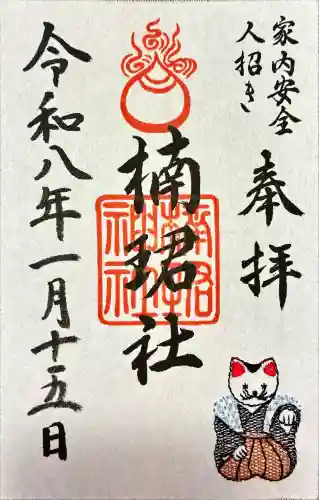 家内安全
人招き
奉拝
楠珺社
楠珺
神社
令和八年一月十五日